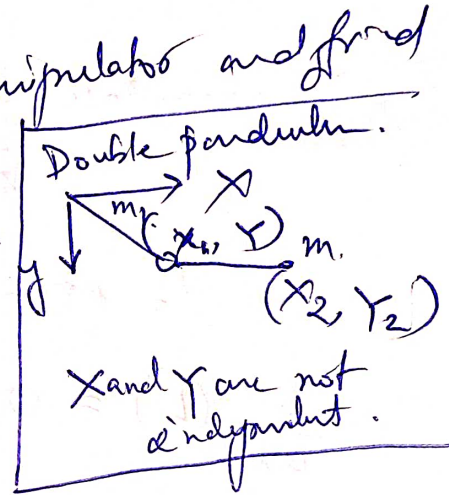 nipulator and find
Double pendulum.
X
m1
(x1, Y)
m.
y
(X2, Y2)
X and Y are not
independent.